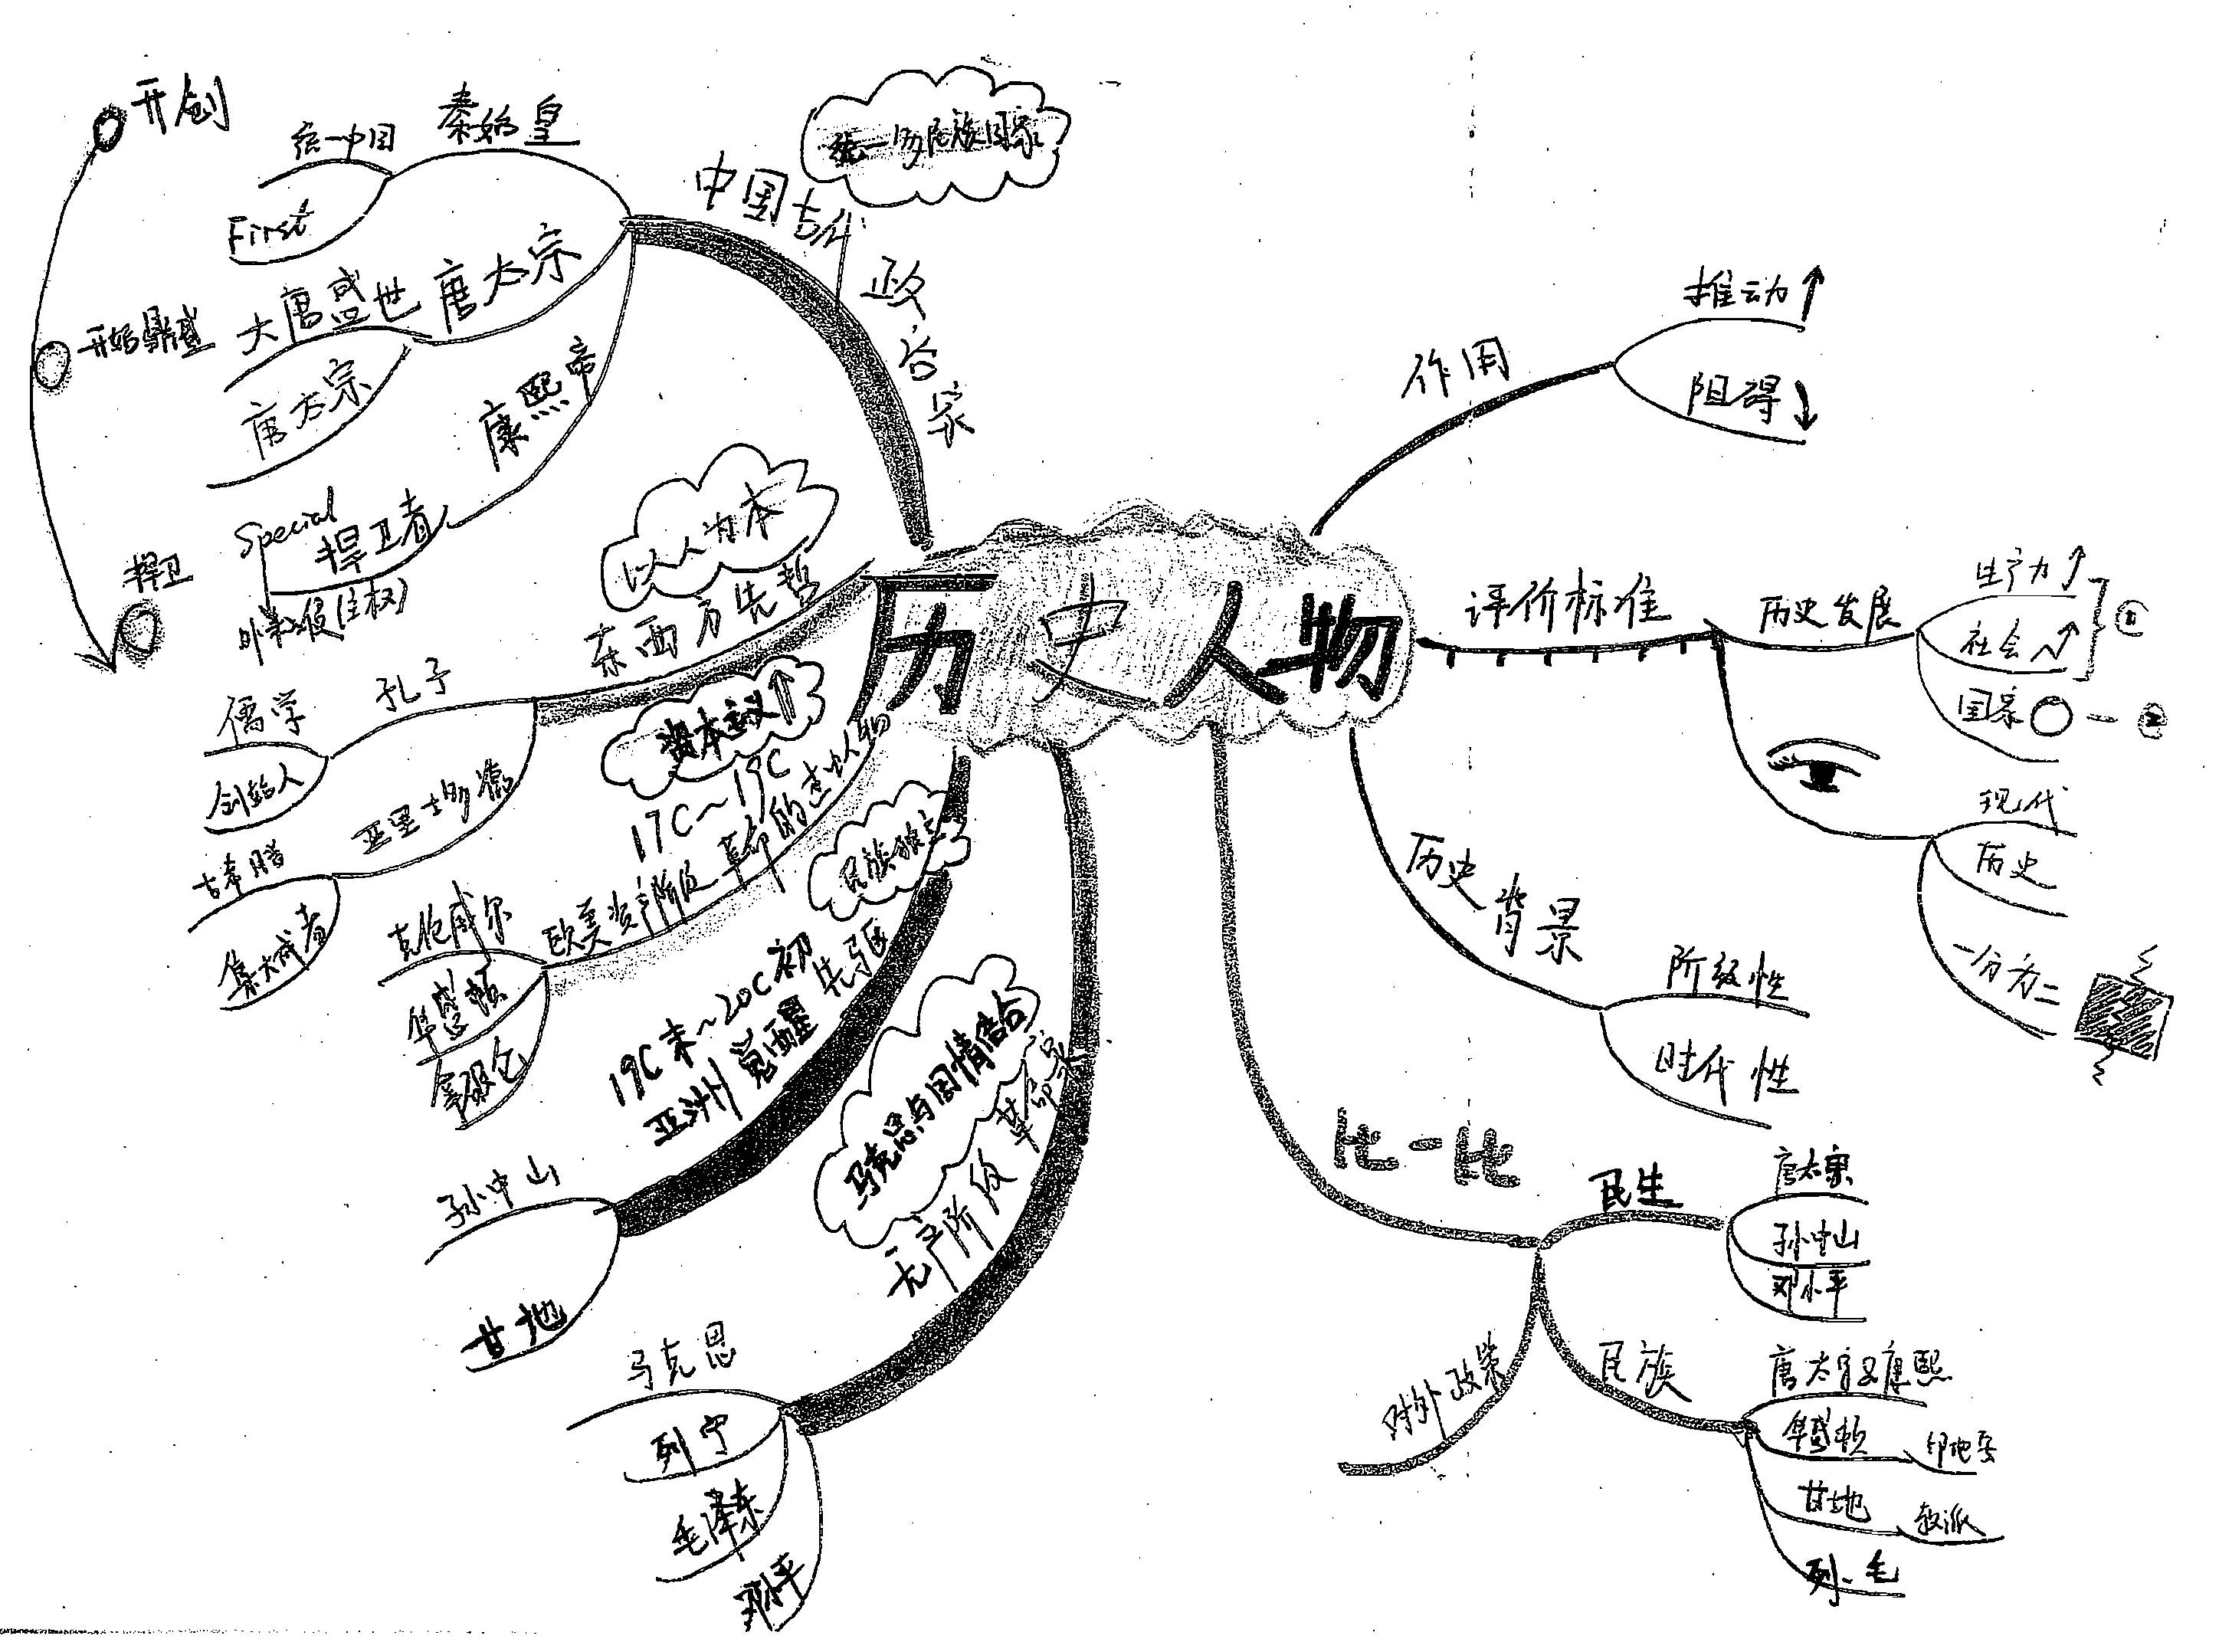 历史人物
中国古代政治家
统一多民族国家
秦始皇
统一中国
First
唐太宗
大唐盛世
唐太宗
康熙帝
Special
捍卫者
开创
开始鼎盛
捍卫
东西方先哲
以人为本
孔子
儒学
创始人
亚里士多德
古希腊
集大成者
17C～19C
欧美资产阶级革命的
资本主义↑
克伦威尔
华盛顿
拿破仑
19C末～20C初
亚洲觉醒先驱
民族独立
孙中山
甘地
无产阶级革命家
马克思与国情结合
马克思
列宁
毛泽东
邓小平
作用
推动↑
阻碍↓
评价标准
历史发展
生产力↑
社会
①
国家
②
现代
历史
一分为二
历史背景
阶级性
时代性
比一比
民生
唐太宗
孙中山
邓小平
民族
康熙
华盛顿
甘地
教派
列、毛
对外政策